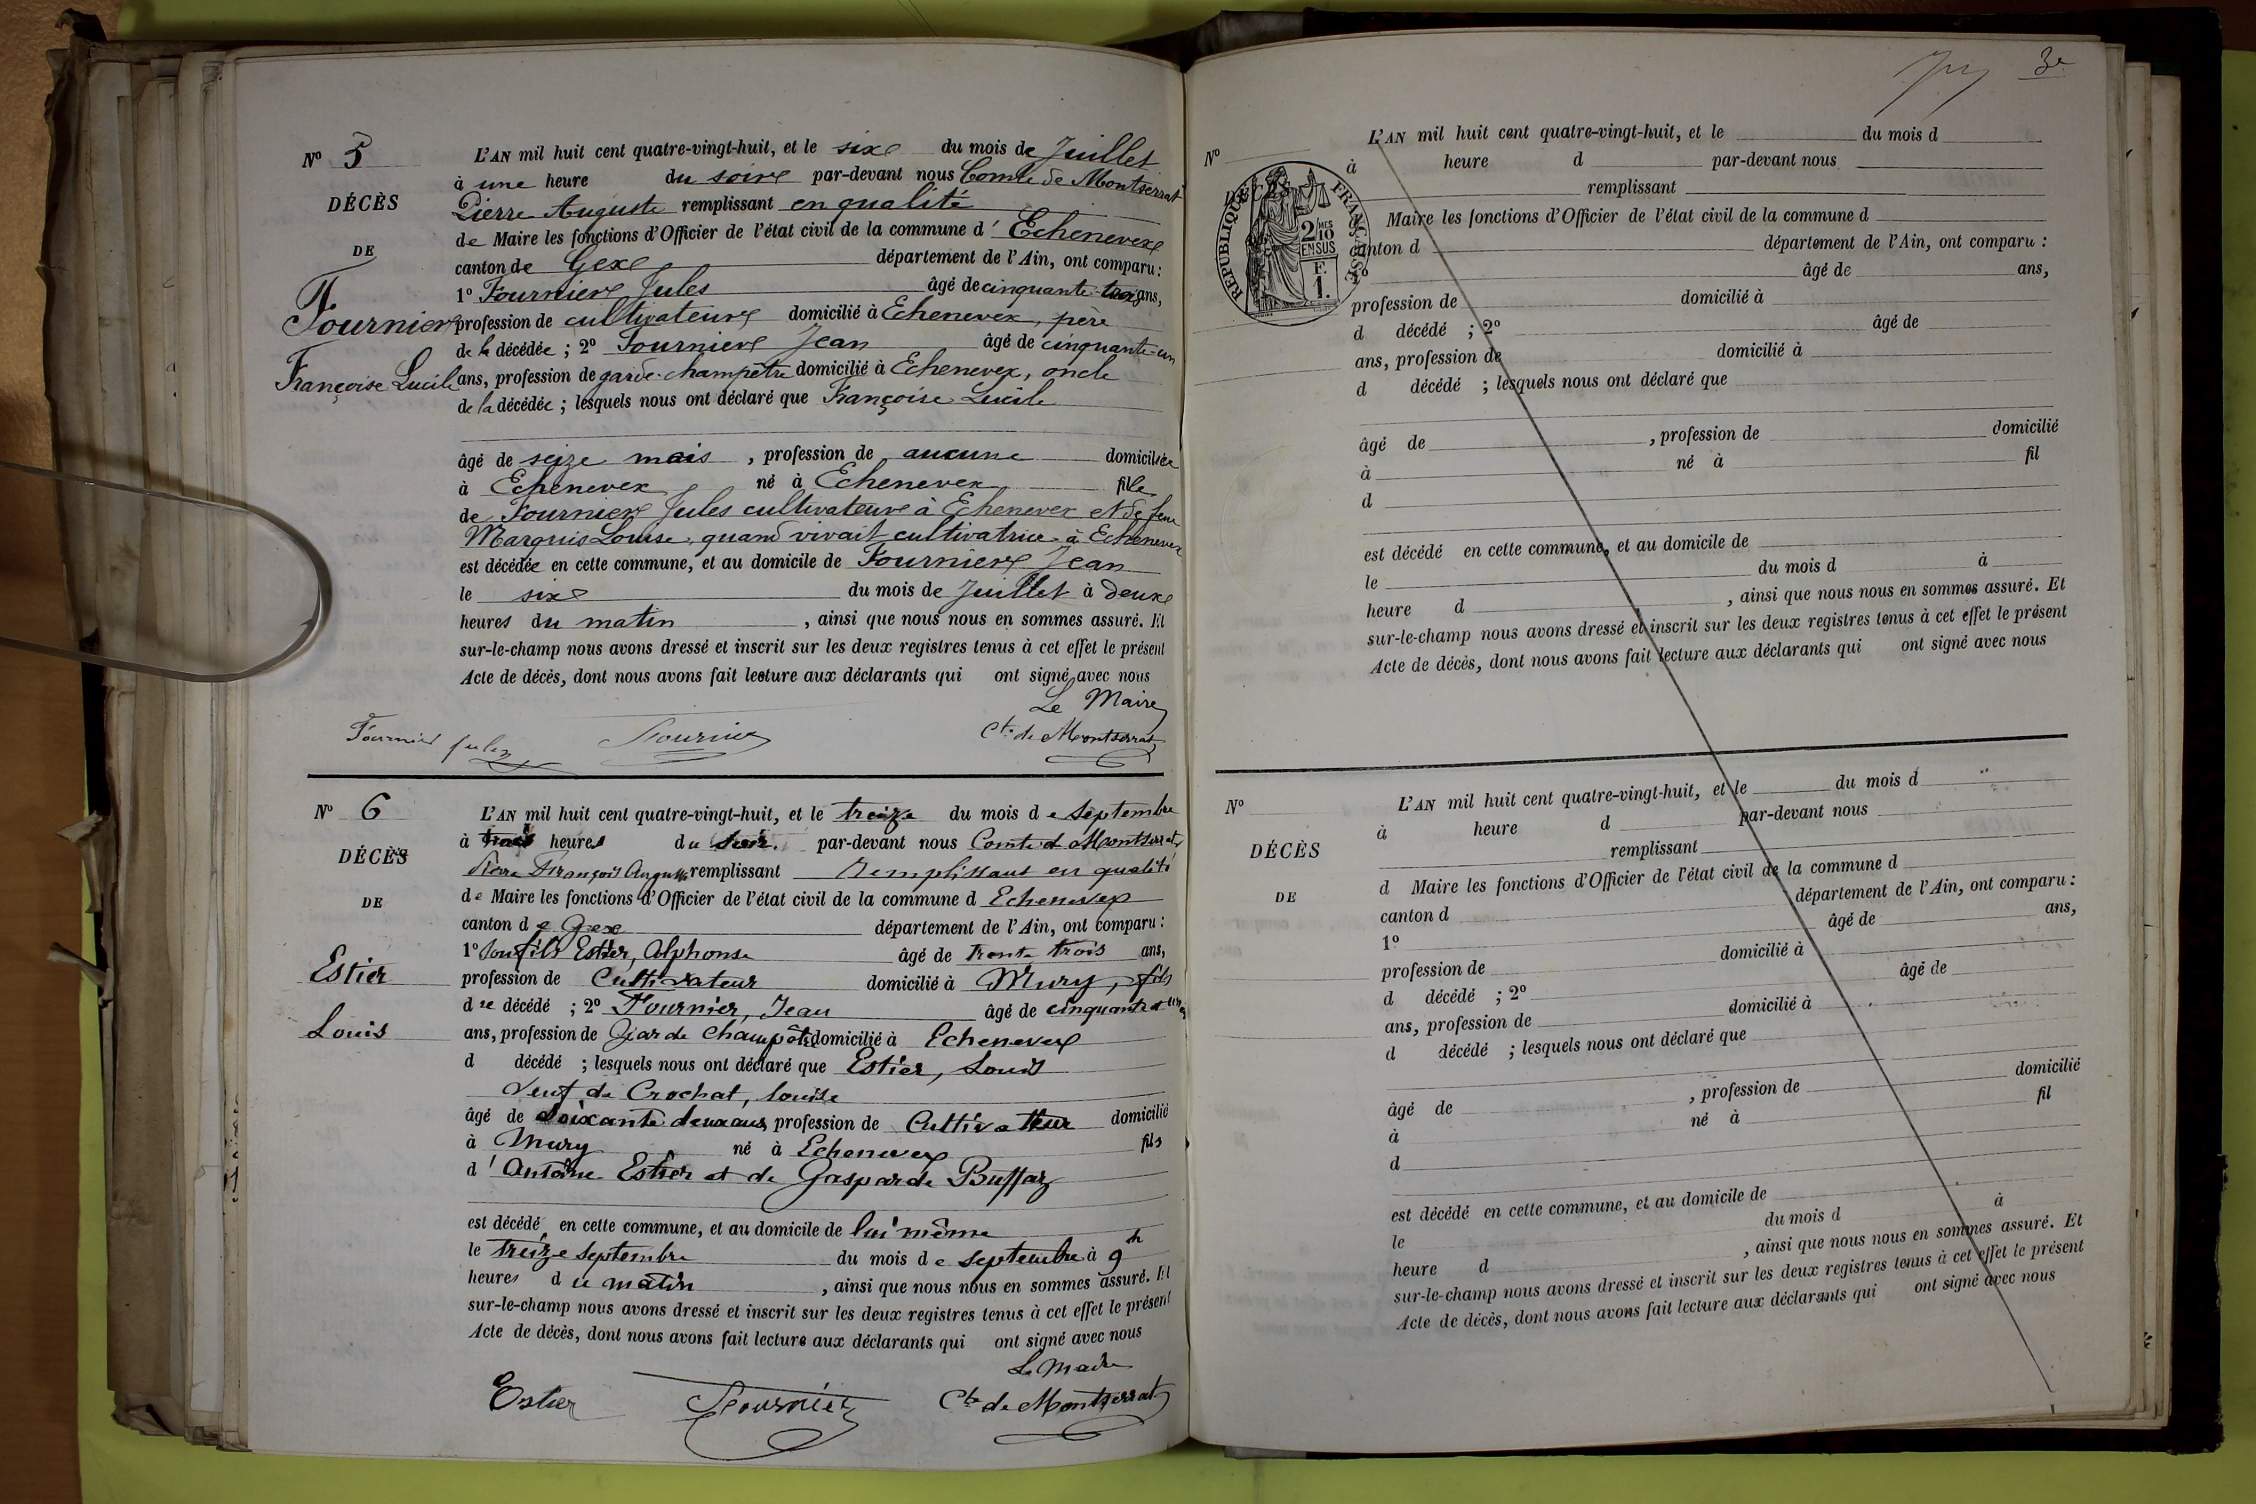 N° 5
DÉCÈS
DE
Fournier
Françoise Lucile
L'AN mil huit cent quatre-vingt-huit, et le six du mois de Juillet
à une heure du soir par-devant nous Comte de Montserrat
Pierre Auguste remplissant en qualité
de Maire les fonctions d'Officier de l'état civil de la commune d'Echenevex
canton de Gex département de l'Ain, ont comparu :
1° Fournier Jules âgé de cinquante-trois ans,
profession de cultivateur domicilié à Echenevex, père
de la décédée ; 2° Fournier Jean âgé de cinquante-un
ans, profession de garde-champêtre domicilié à Echenevex, oncle
de la décédée ; lesquels nous ont déclaré que Françoise Lucile
âgé de seize mois , profession de aucune domiciliée
à Echenevex né à Echenevex fille
de Fournier Jules cultivateur à Echenevex et de feue
Marquis Louise, quand vivait cultivatrice à Echenevex
est décédée en cette commune, et au domicile de Fournier Jean
le six du mois de Juillet à deux
heures du matin , ainsi que nous nous en sommes assuré. Et
sur-le-champ nous avons dressé et inscrit sur les deux registres tenus à cet effet le présent
Acte de décès, dont nous avons fait lecture aux déclarants qui ont signé avec nous
Le Maire
Fournier Jules Fournier Cte de Montserrat
N° 6
DÉCÈS
DE
Estier
Louis
L'AN mil huit cent quatre-vingt-huit, et le treize du mois de Septembre
à trois heures du soir. par-devant nous Comte de Montserrat
Pierre François Auguste remplissant Remplissant en qualité
de Maire les fonctions d'Officier de l'état civil de la commune d Echenevex
canton de Gex département de l'Ain, ont comparu :
1° Son fils Estier, Alphonse âgé de Trente trois ans,
profession de Cultivateur domicilié à Mury, fils
du décédé ; 2° Fournier, Jean âgé de cinquante et un
ans, profession de Garde Champêtre domicilié à Echenevex
d décédé ; lesquels nous ont déclaré que Estier, Louis
Veuf de Crochat, Louise
âgé de Soixante deux ans, profession de Cultivateur domicilié
à Mury né à Echenevex fils
d'Antoine Estier et de Gasparde Buffaz
est décédé en cette commune, et au domicile de lui même
le treize septembre du mois de septembre à 9 h
heures du matin , ainsi que nous nous en sommes assuré. Et
sur-le-champ nous avons dressé et inscrit sur les deux registres tenus à cet effet le présent
Acte de décès, dont nous avons fait lecture aux déclarants qui ont signé avec nous
Le Maire
Estier Fournier Cte de Montserrat
3e
N°
DÉC
RÉPUBLIQUE FRANÇAISE
2/10 MES EN SUS
F. 1.
L'AN mil huit cent quatre-vingt-huit, et le du mois d
à heure d par-devant nous
remplissant
Maire les fonctions d'Officier de l'état civil de la commune d
canton d département de l'Ain, ont comparu :
âgé de ans,
profession de domicilié à
d décédé ; 2° âgé de
ans, profession de domicilié à
d décédé ; lesquels nous ont déclaré que
âgé de , profession de domicilié
à né à fil
d
est décédé en cette commune, et au domicile de
le du mois d à
heure d , ainsi que nous nous en sommes assuré. Et
sur-le-champ nous avons dressé et inscrit sur les deux registres tenus à cet effet le présent
Acte de décès, dont nous avons fait lecture aux déclarants qui ont signé avec nous
N°
DÉCÈS
DE
L'AN mil huit cent quatre-vingt-huit, et le du mois d
à heure d par-devant nous
remplissant
d Maire les fonctions d'Officier de l'état civil de la commune d
canton d département de l'Ain, ont comparu :
1° âgé de ans,
profession de domicilié à
d décédé ; 2° âgé de
ans, profession de domicilié à
d décédé ; lesquels nous ont déclaré que
âgé de , profession de domicilié
à né à fil
d
est décédé en cette commune, et au domicile de
le du mois d à
heure d , ainsi que nous nous en sommes assuré. Et
sur-le-champ nous avons dressé et inscrit sur les deux registres tenus à cet effet le présent
Acte de décès, dont nous avons fait lecture aux déclarants qui ont signé avec nous